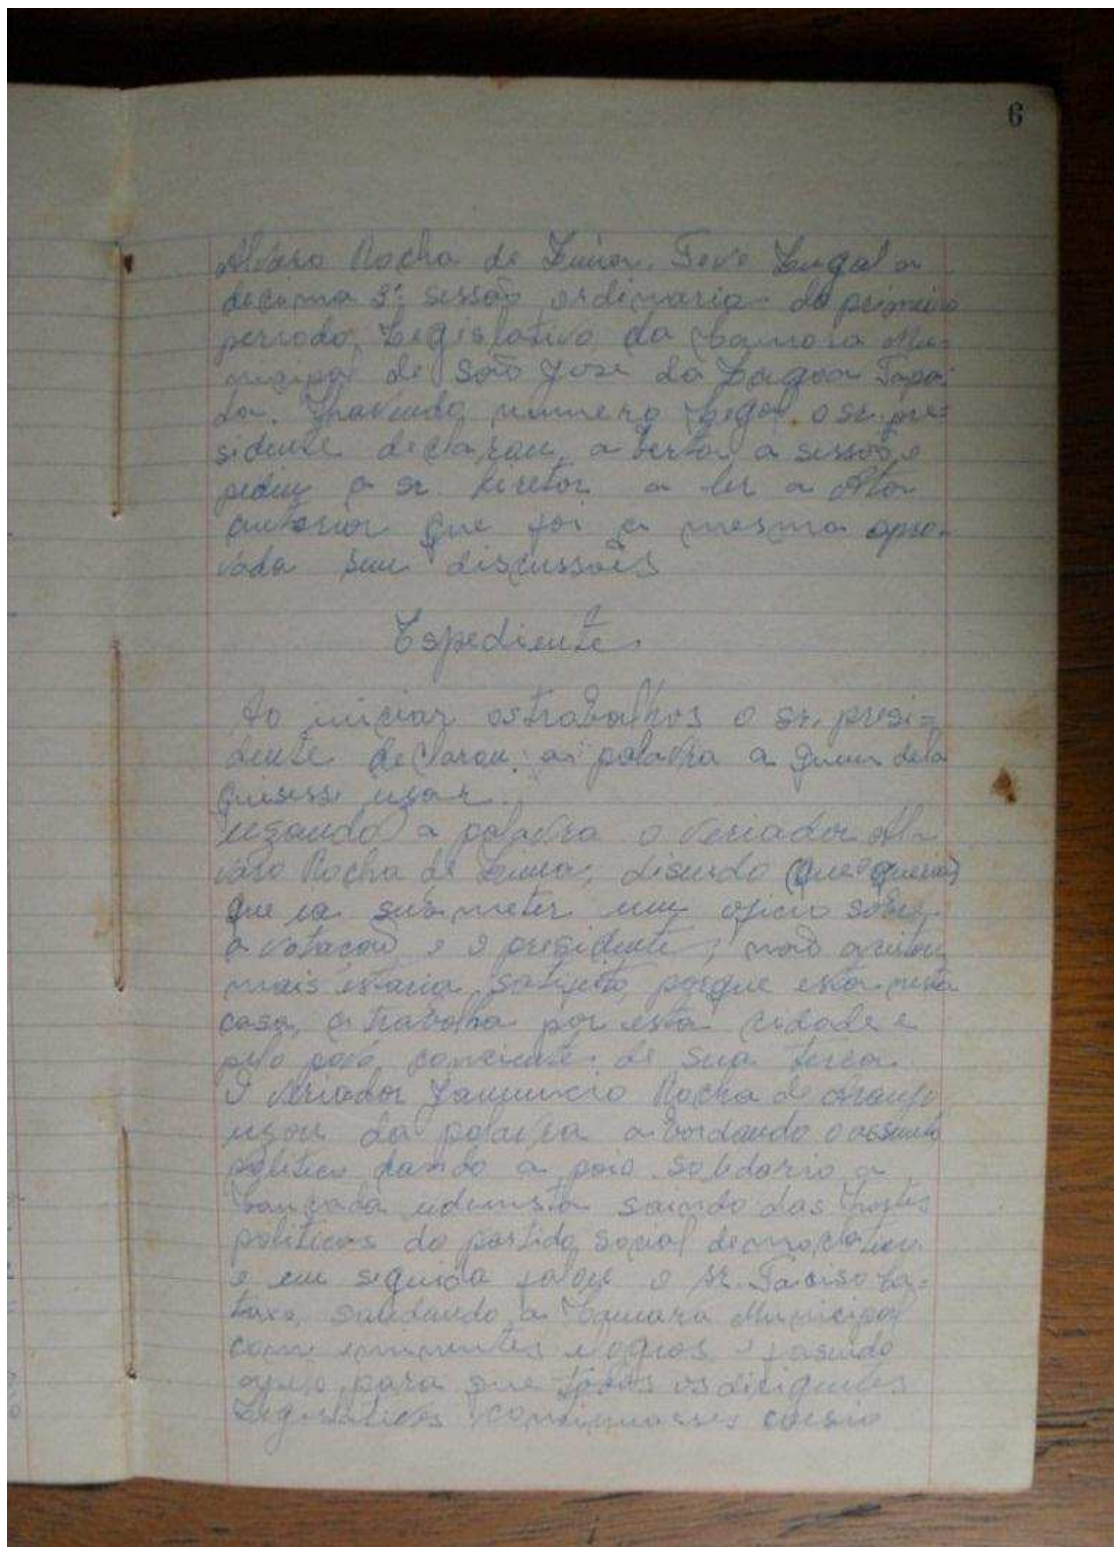 6
Alváro Rocha de Lima. Teve Lugal a
decima 5ª sessão ordinaria do primeiro
periodo Legislativo da Camara Mu-
nicipal de São José da Lagoa Tapa-
da. Havendo numero legal o sr. pre-
sidente declarou a berta a sessão e
pediu o sr. diretor a ler a Ata
anterior que foi a mesma apro-
vada sem discussões
Espediente
Ao iniciar os trabalhos o sr. presi=
dente declarou a palavra a quem dela
quisesse usar.
usando a palavra o veriador Al-
váro Rocha de Lima, disendo (que queria)
que ia submeter um oficio sobre
a votação e o presidente, não aceitou
mais estaria satifeito, porque esta nesta
casa, a trabalha por esta cidade e
pelo povo conciente de sua terra.
O veriador Rocha de Araujo
usou da palavra a bordando o assunto
politico dando a poio solidario a
bancada udenista saindo das hostes
politicas do partido social democratico
e em seguida falou o sr. Taciso
saudando a Camara Municipal
com eminentes elogios e fasendo
apelo para que todos os dirigentes
Legislativos continuasse coesio